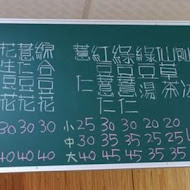 花生豆花
薏仁豆花
綜合豆花
薏仁
紅豆薏仁
綠豆薏仁
綠豆湯
仙草茶
30 30 30 小 25 30 30 20 20
中 30 35 35 25 25 25
40 40 40 大 40 45 45 35 35 35